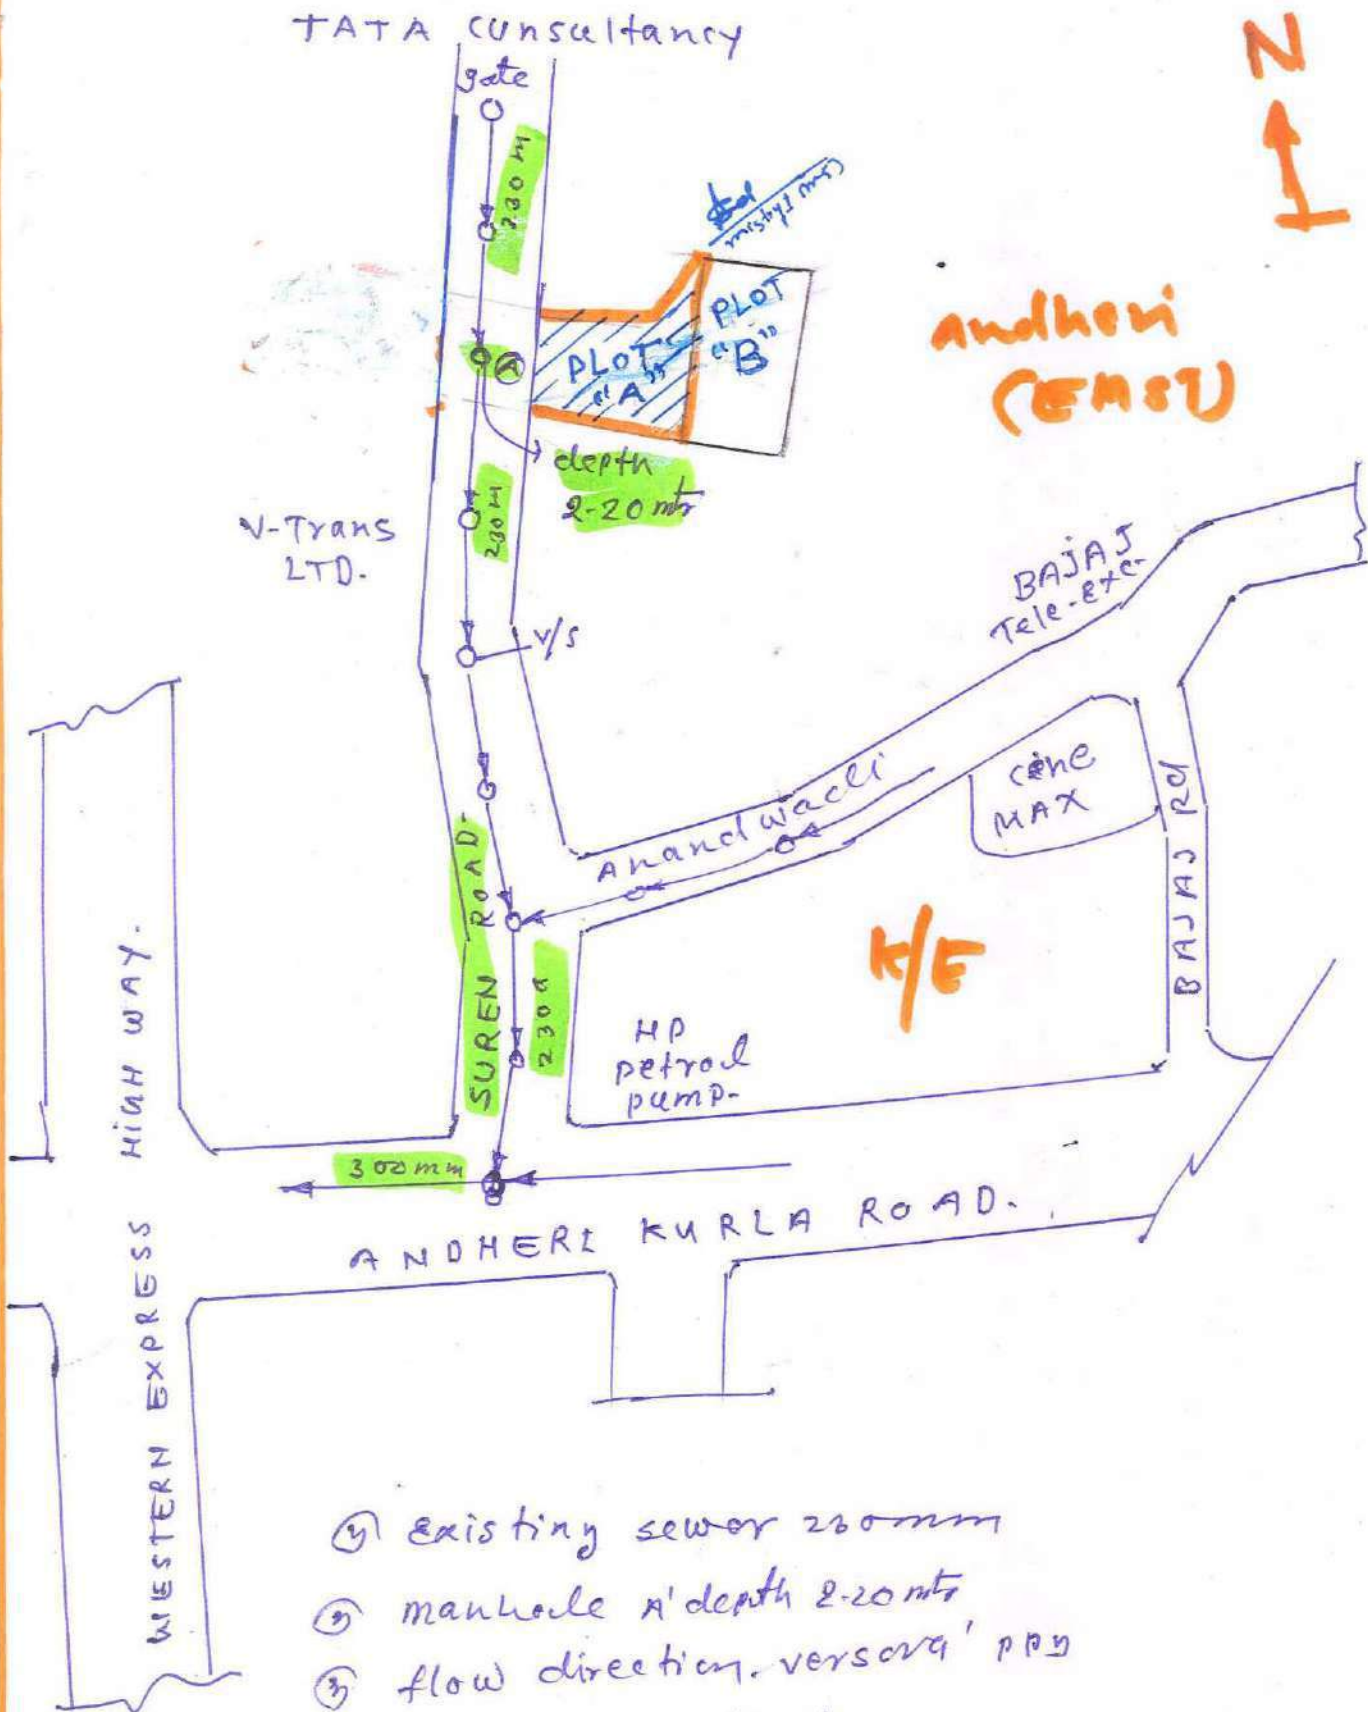 TATA Consultancy
gate
N
230 M
PLOT
"A"
PLOT
"B"
A
Andheri
(EAST)
depth
2-20 mtr
230 M
V-Trans
LTD.
V/S
BAJAJ
Tele-Exc-
Anandwadi
Cine
MAX
BAJAJ Rd
SUREN ROAD-
230 M
K/E
HP
petrol
pump-
300mm
ANDHERI KURLA ROAD.
WESTERN EXPRESS HIGH WAY.
existing sewer 230mm
manhole A' depth 2-20 mtr
③ flow direction. versova' ppg